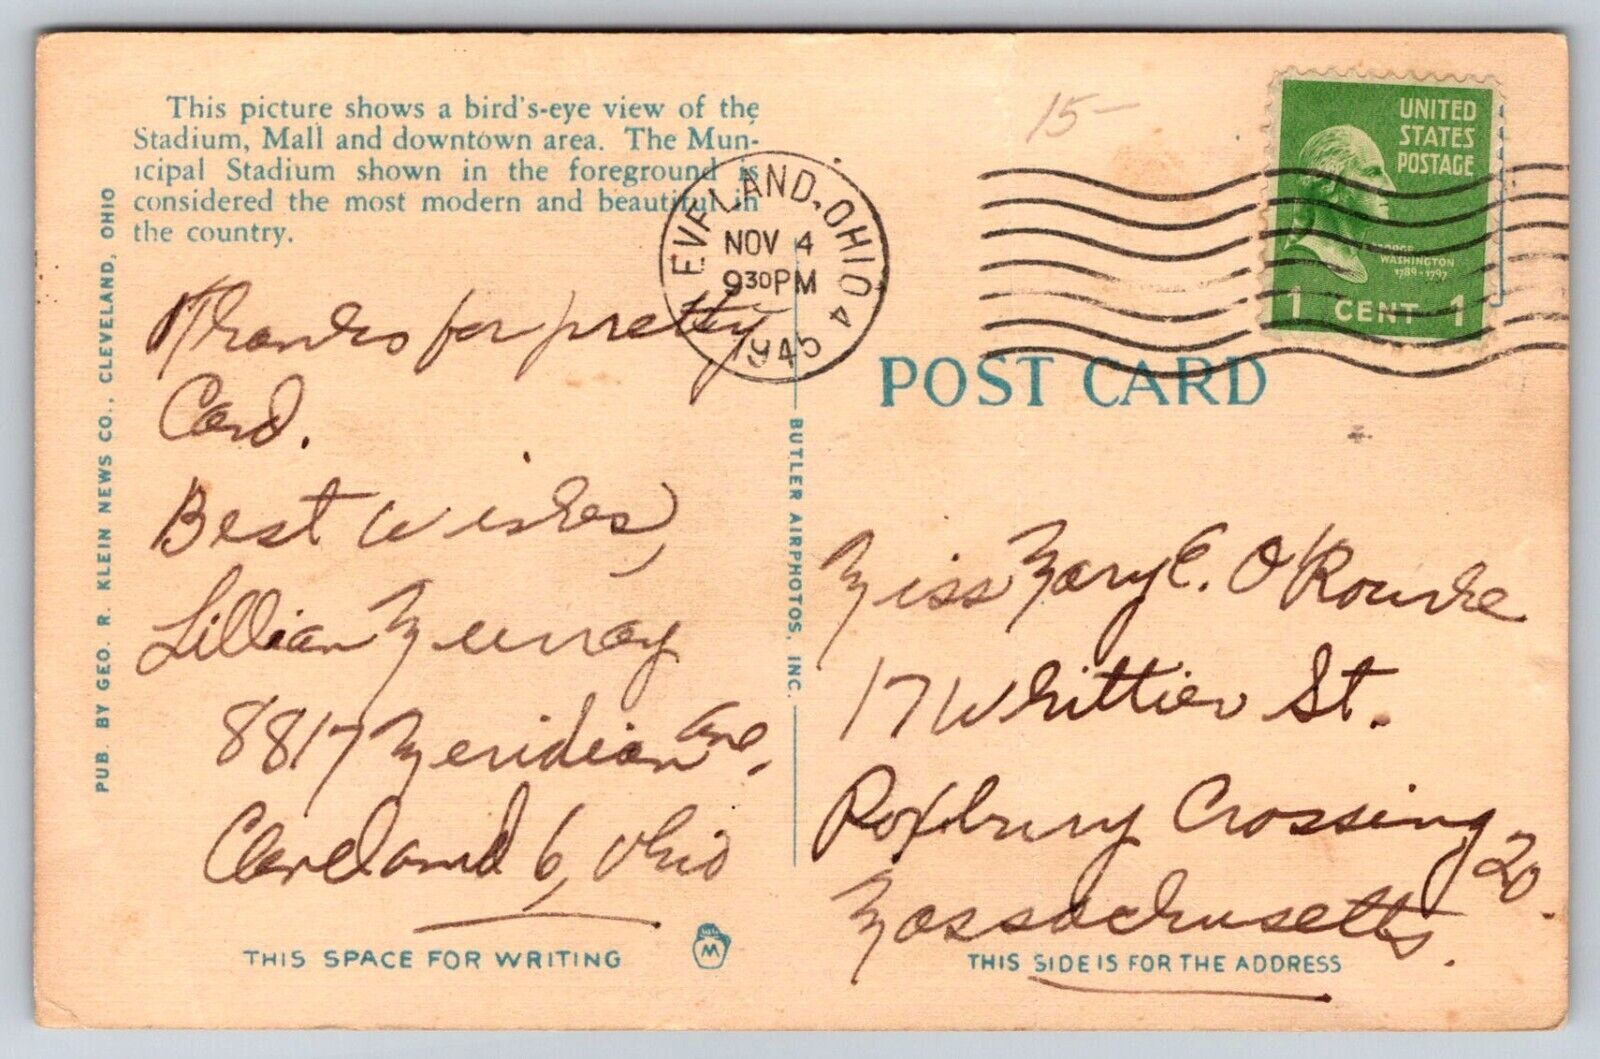 This picture shows a bird's-eye view of the
Stadium, Mall and downtown area. The Mun-
icipal Stadium shown in the foreground is
considered the most modern and beautiful in
the country.
PUB. BY GEO. R. KLEIN NEWS CO., CLEVELAND, OHIO
Thanks for pretty
Card.
Best Wishes,
Lillian Murray
8817 Meridian Ave,
Cleveland 6, Ohio
THIS SPACE FOR WRITING
BUTLER AIRPHOTOS, INC.
CLEVELAND, OHIO 4
NOV 4
930PM
1945
15-
UNITED
STATES
POSTAGE
GEORGE
WASHINGTON
1789-1797
1 CENT 1
POST CARD
Miss Mary E. O'Rourke
17 Whittier St.
Roxbury Crossing 20.
Massachusetts.
THIS SIDE IS FOR THE ADDRESS